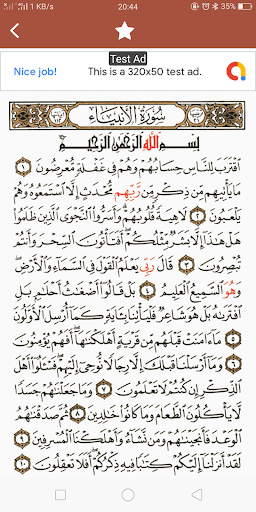 1 KB/s 20:44 35%
Test Ad
Nice job! This is a 320x50 test ad.
سورة الأنبياء
بسم الله الرحمن الرحيم
اقترب للناس حسابهم وهم في غفلة معرضون ١
ما يأتيهم من ذكر من ربهم محدث إلا استمعوه وهم
يلعبون ٢ لاهية قلوبهم وأسروا النجوى الذين ظلموا
هل هذا إلا بشر مثلكم أفتأتون السحر وأنتم
تبصرون ٣ قال ربي يعلم القول في السماء والأرض
وهو السميع العليم ٤ بل قالوا أضغاث أحلام بل
افتراه بل هو شاعر فليأتنا بآية كما أرسل الأولون
٥ ما آمنت قبلهم من قرية أهلكناها أفهم يؤمنون
٦ وما أرسلنا قبلك إلا رجالا نوحي إليهم فسئلوا أهل
الذكر إن كنتم لا تعلمون ٧ وما جعلناهم جسدا
لا يأكلون الطعام وما كانوا خالدين ٨ ثم صدقناهم
الوعد فأنجيناهم ومن نشاء وأهلكنا المسرفين ٩
لقد أنزلنا إليكم كتابا فيه ذكركم أفلا تعقلون ١٠